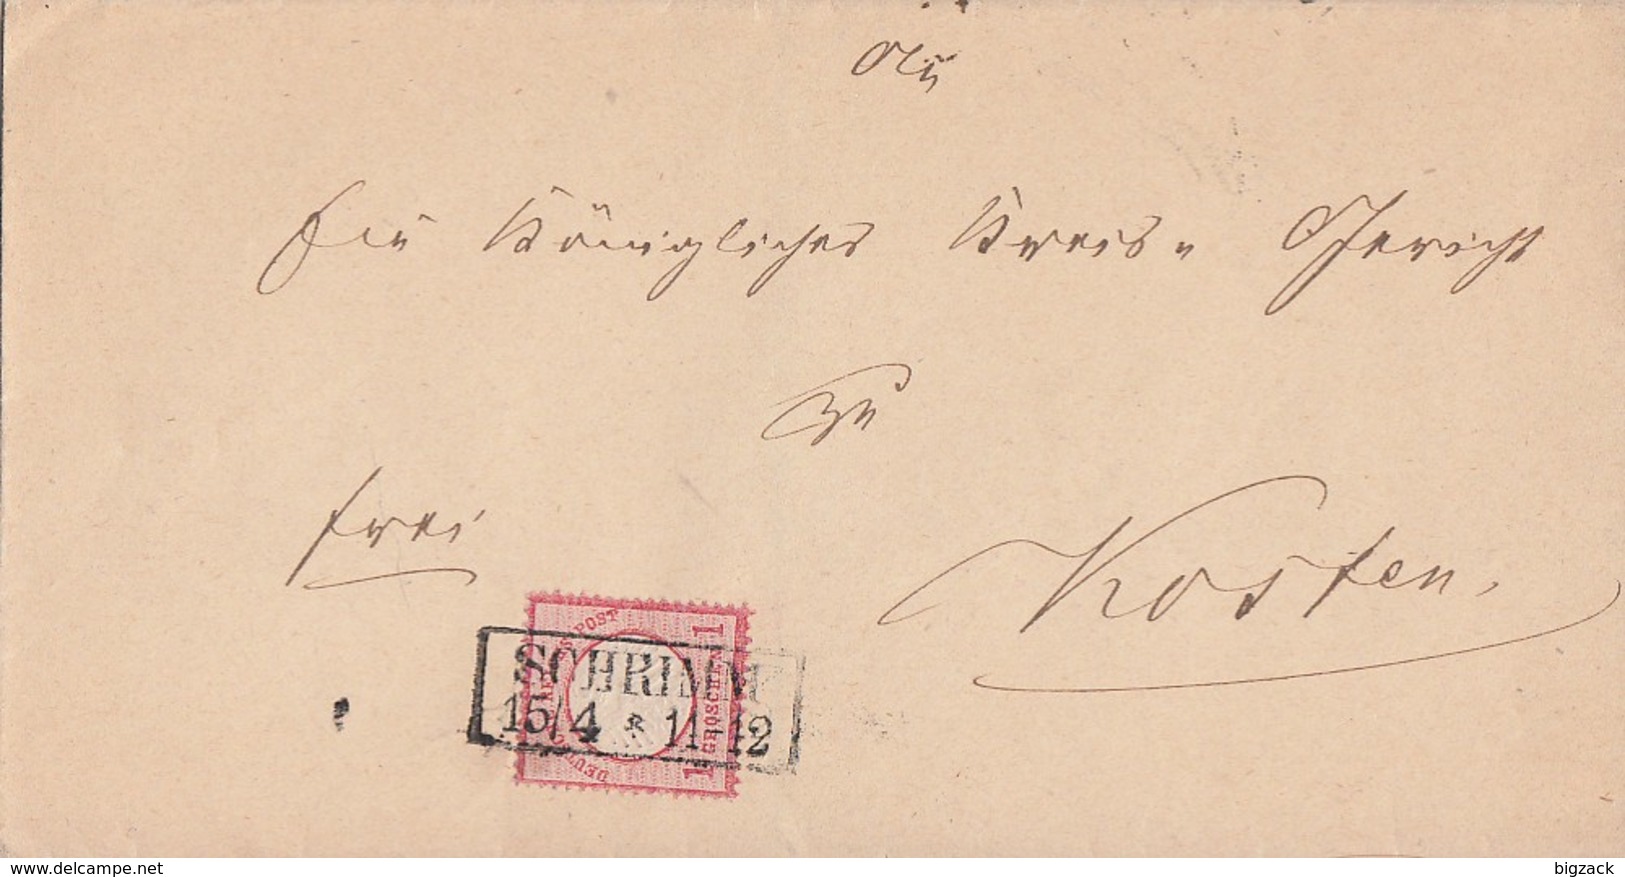 An
Ein Königliches Kreis- Gericht
zu
frei
Kosten.
DEUTSCHE REICHS-POST
1 GROSCHEN 1
SCHRIMM
15/4 * 11-12
www.delcampe.net
bigzack